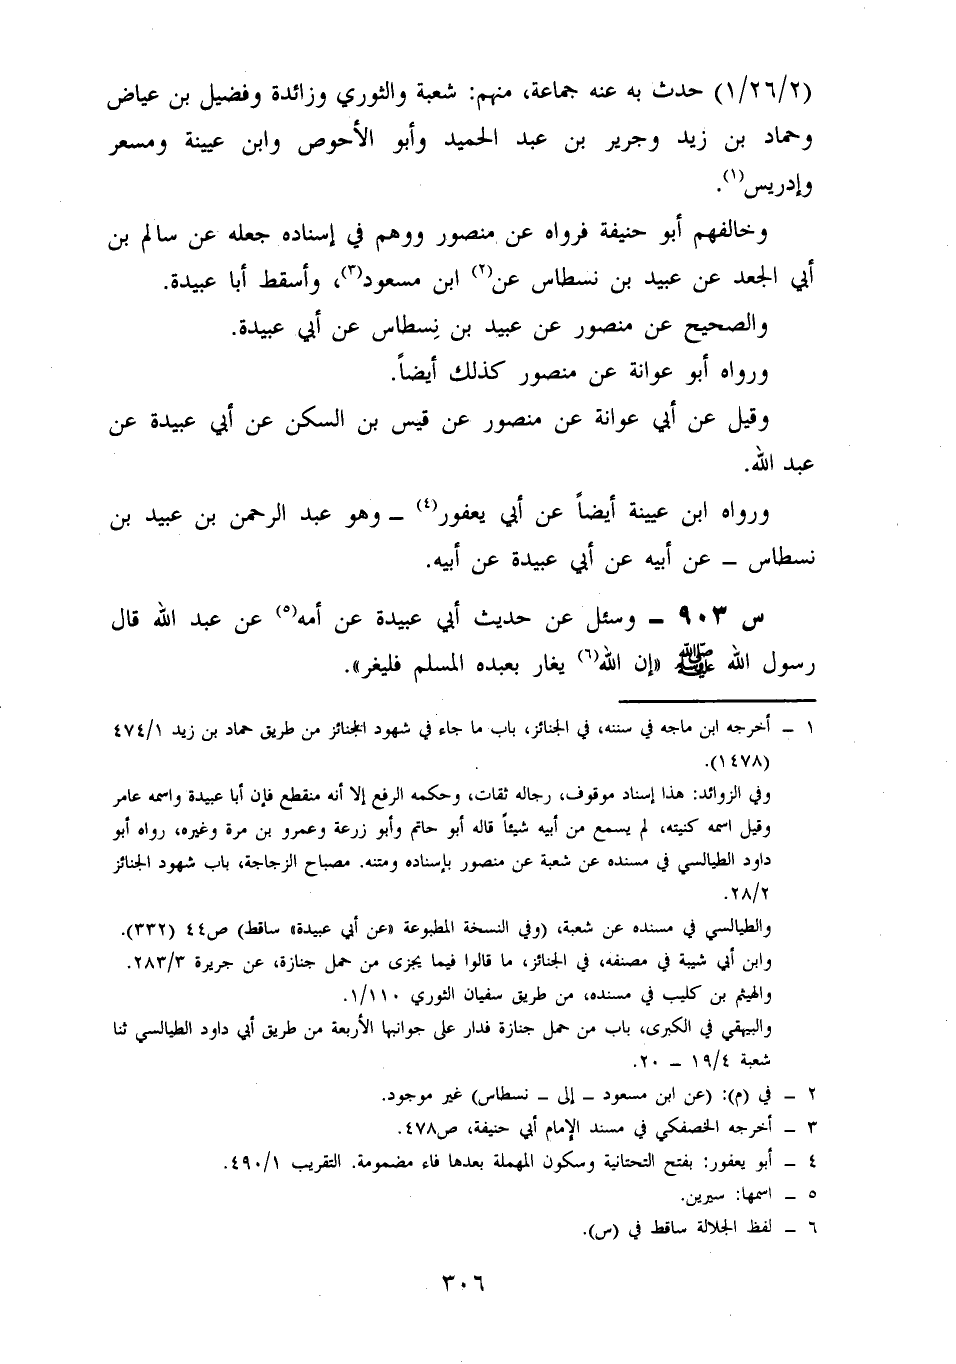 (١/٢٦/٢) حدث به عنه جماعة، منهم: شعبة والثوري وزائدة وفضيل بن عياض
وحماد بن زيد وجرير بن عبد الحميد وأبو الأحوص وابن عيينة ومسعر
وإدريس(١).
وخالفهم أبو حنيفة فرواه عن منصور ووهم في إسناده جعله عن سالم بن
أبي الجعد عن عبيد بن نسطاس عن(٢) ابن مسعود(٣)، وأسقط أبا عبيدة.
والصحيح عن منصور عن عبيد بن نِسطاس عن أبي عبيدة.
ورواه أبو عوانة عن منصور كذلك أيضاً.
وقيل عن أبي عوانة عن منصور عن قيس بن السكن عن أبي عبيدة عن
عبد الله.
ورواه ابن عيينة أيضاً عن أبي يعفور(٤) ــ وهو عبد الرحمن بن عبيد بن
نسطاس ــ عن أبيه عن أبي عبيدة عن أبيه.
س ٩٠٣ ــ وسئل عن حديث أبي عبيدة عن أمه(٥) عن عبد الله قال
رسول الله ﷺ «إن الله(٦) يغار بعبده المسلم فليغر».
١ ــ أخرجه ابن ماجه في سننه، في الجنائز، باب ما جاء في شهود الجنائز من طريق حماد بن زيد ٤٧٤/١
(١٤٧٨).
وفي الزوائد: هذا إسناد موقوف، رجاله ثقات، وحكمه الرفع إلا أنه منقطع فإن أبا عبيدة واسمه عامر
وقيل اسمه كنيته، لم يسمع من أبيه شيئاً قاله أبو حاتم وأبو زرعة وعمرو بن مرة وغيره، رواه أبو
داود الطيالسي في مسنده عن شعبة عن منصور بإسناده ومتنه. مصباح الزجاجة، باب شهود الجنائز
٢٨/٢.
والطيالسي في مسنده عن شعبة، (وفي النسخة المطبوعة «عن أبي عبيدة» ساقط) ص٤٤ (٣٣٢).
وابن أبي شيبة في مصنفه، في الجنائز، ما قالوا فيما يجزى من حمل جنازة، عن جريرة ٢٨٣/٣.
والهيثم بن كليب في مسنده، من طريق سفيان الثوري ١/١١٠.
والبيهقي في الكبرى، باب من حمل جنازة فدار على جوانبها الأربعة من طريق أبي داود الطيالسي ثنا
شعبة ١٩/٤ ــ ٢٠.
٢ ــ في (م): (عن ابن مسعود ــ إلى ــ نسطاس) غير موجود.
٣ ــ أخرجه الخصفكي في مسند الإمام أبي حنيفة، ص٤٧٨.
٤ ــ أبو يعفور: بفتح التحتانية وسكون المهملة بعدها فاء مضمومة. التقريب ٤٩٠/١.
٥ ــ اسمها: سيرين.
٦ ــ لفظ الجلالة ساقط في (س).
٣٠٦